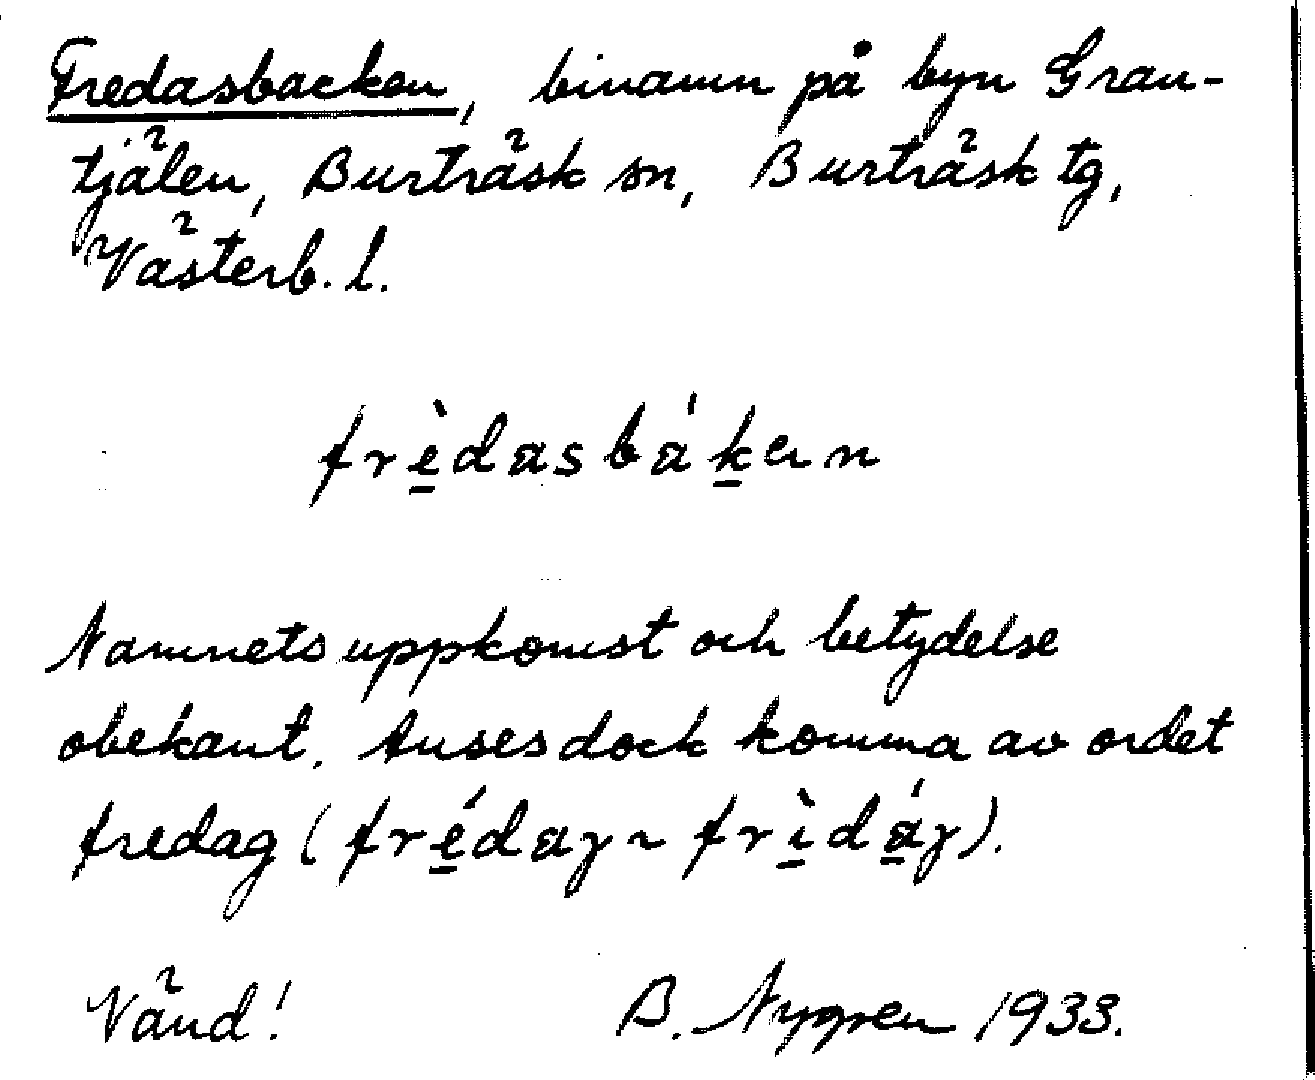 Fredasbacken, binamn på byn Gran-
tjälen, Burträsk sn, Burträsk tg,
Västerb. l.
frèdasbákən
Namnets uppkomst och betydelse
obekant. Anses dock komma av ordet
fredag (frédaγ ~ frìdáγ).
Vänd! B. Nygren 1933.